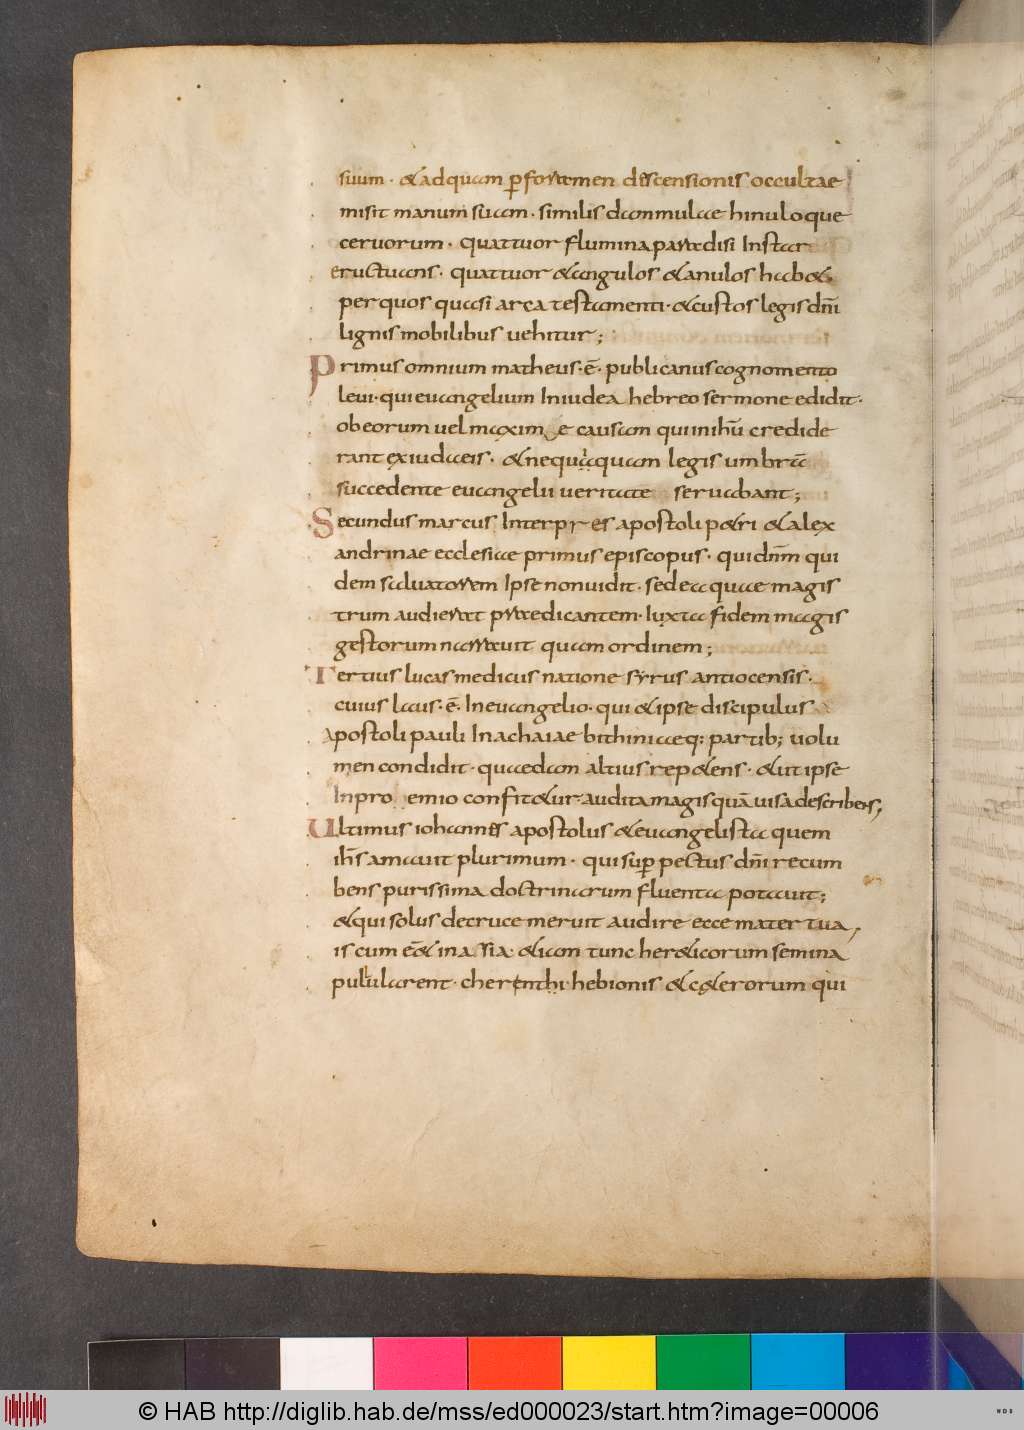 suum · & ad quam p̲ foramen discensionis occultae
misit manum suam · similis damnulae hinuloque
ceruorum · quattuor flumina paradisi Instar
eructuans · quattuor & angulos & anulos hab&
per quos quasi arca testamenti · & custos legis dn̄i
lignis mobilibus uehitur ;
Primus omnium matheus · ē · publicanus cognomento
leui · qui euangelium In iudea hebreo sermone edidit ·
ob eorum uel maxime causam qui in ihū credide
rant ex iudaeis · & nequaquam legis umbra
succedente euangelii ueritate seruabant ;
Secundus marcus Interpres apostoli p&ri & alex
andrinae ecclesiae primus episcopus · qui dnm̄ qui
dem saluatorem Ipse non uidit · sed ea quae magis
trum audierat praedicantem · Iuxta fidem magis
gestorum narrauit quam ordinem ;
Tertius lucas medicus natione syrus antiocensis ·
cuius laus · ē · In euangelio · qui & ipse discipulus
Apostoli pauli In achaiae bithiniaeq: partib; uolu
men condidit · quaedam altius rep&ens · & ut ipse
In pro emio confit&ur audita magis quā uisa describens ;
Ultimus iohannes apostolus & euangelista quem
ih̄s amauit plurimum · qui sup̲ pectus dn̄i recum
bens purissima doctrinarum fluenta potauit ;
& qui solus de cruce meruit audire ecce mater tua ,
is cum ēēt in assia · & iam tunc her&icorum semina
pullularent · cherenthi · hebionis & c&erorum qui
© HAB http://diglib.hab.de/mss/ed000023/start.htm?image=00006